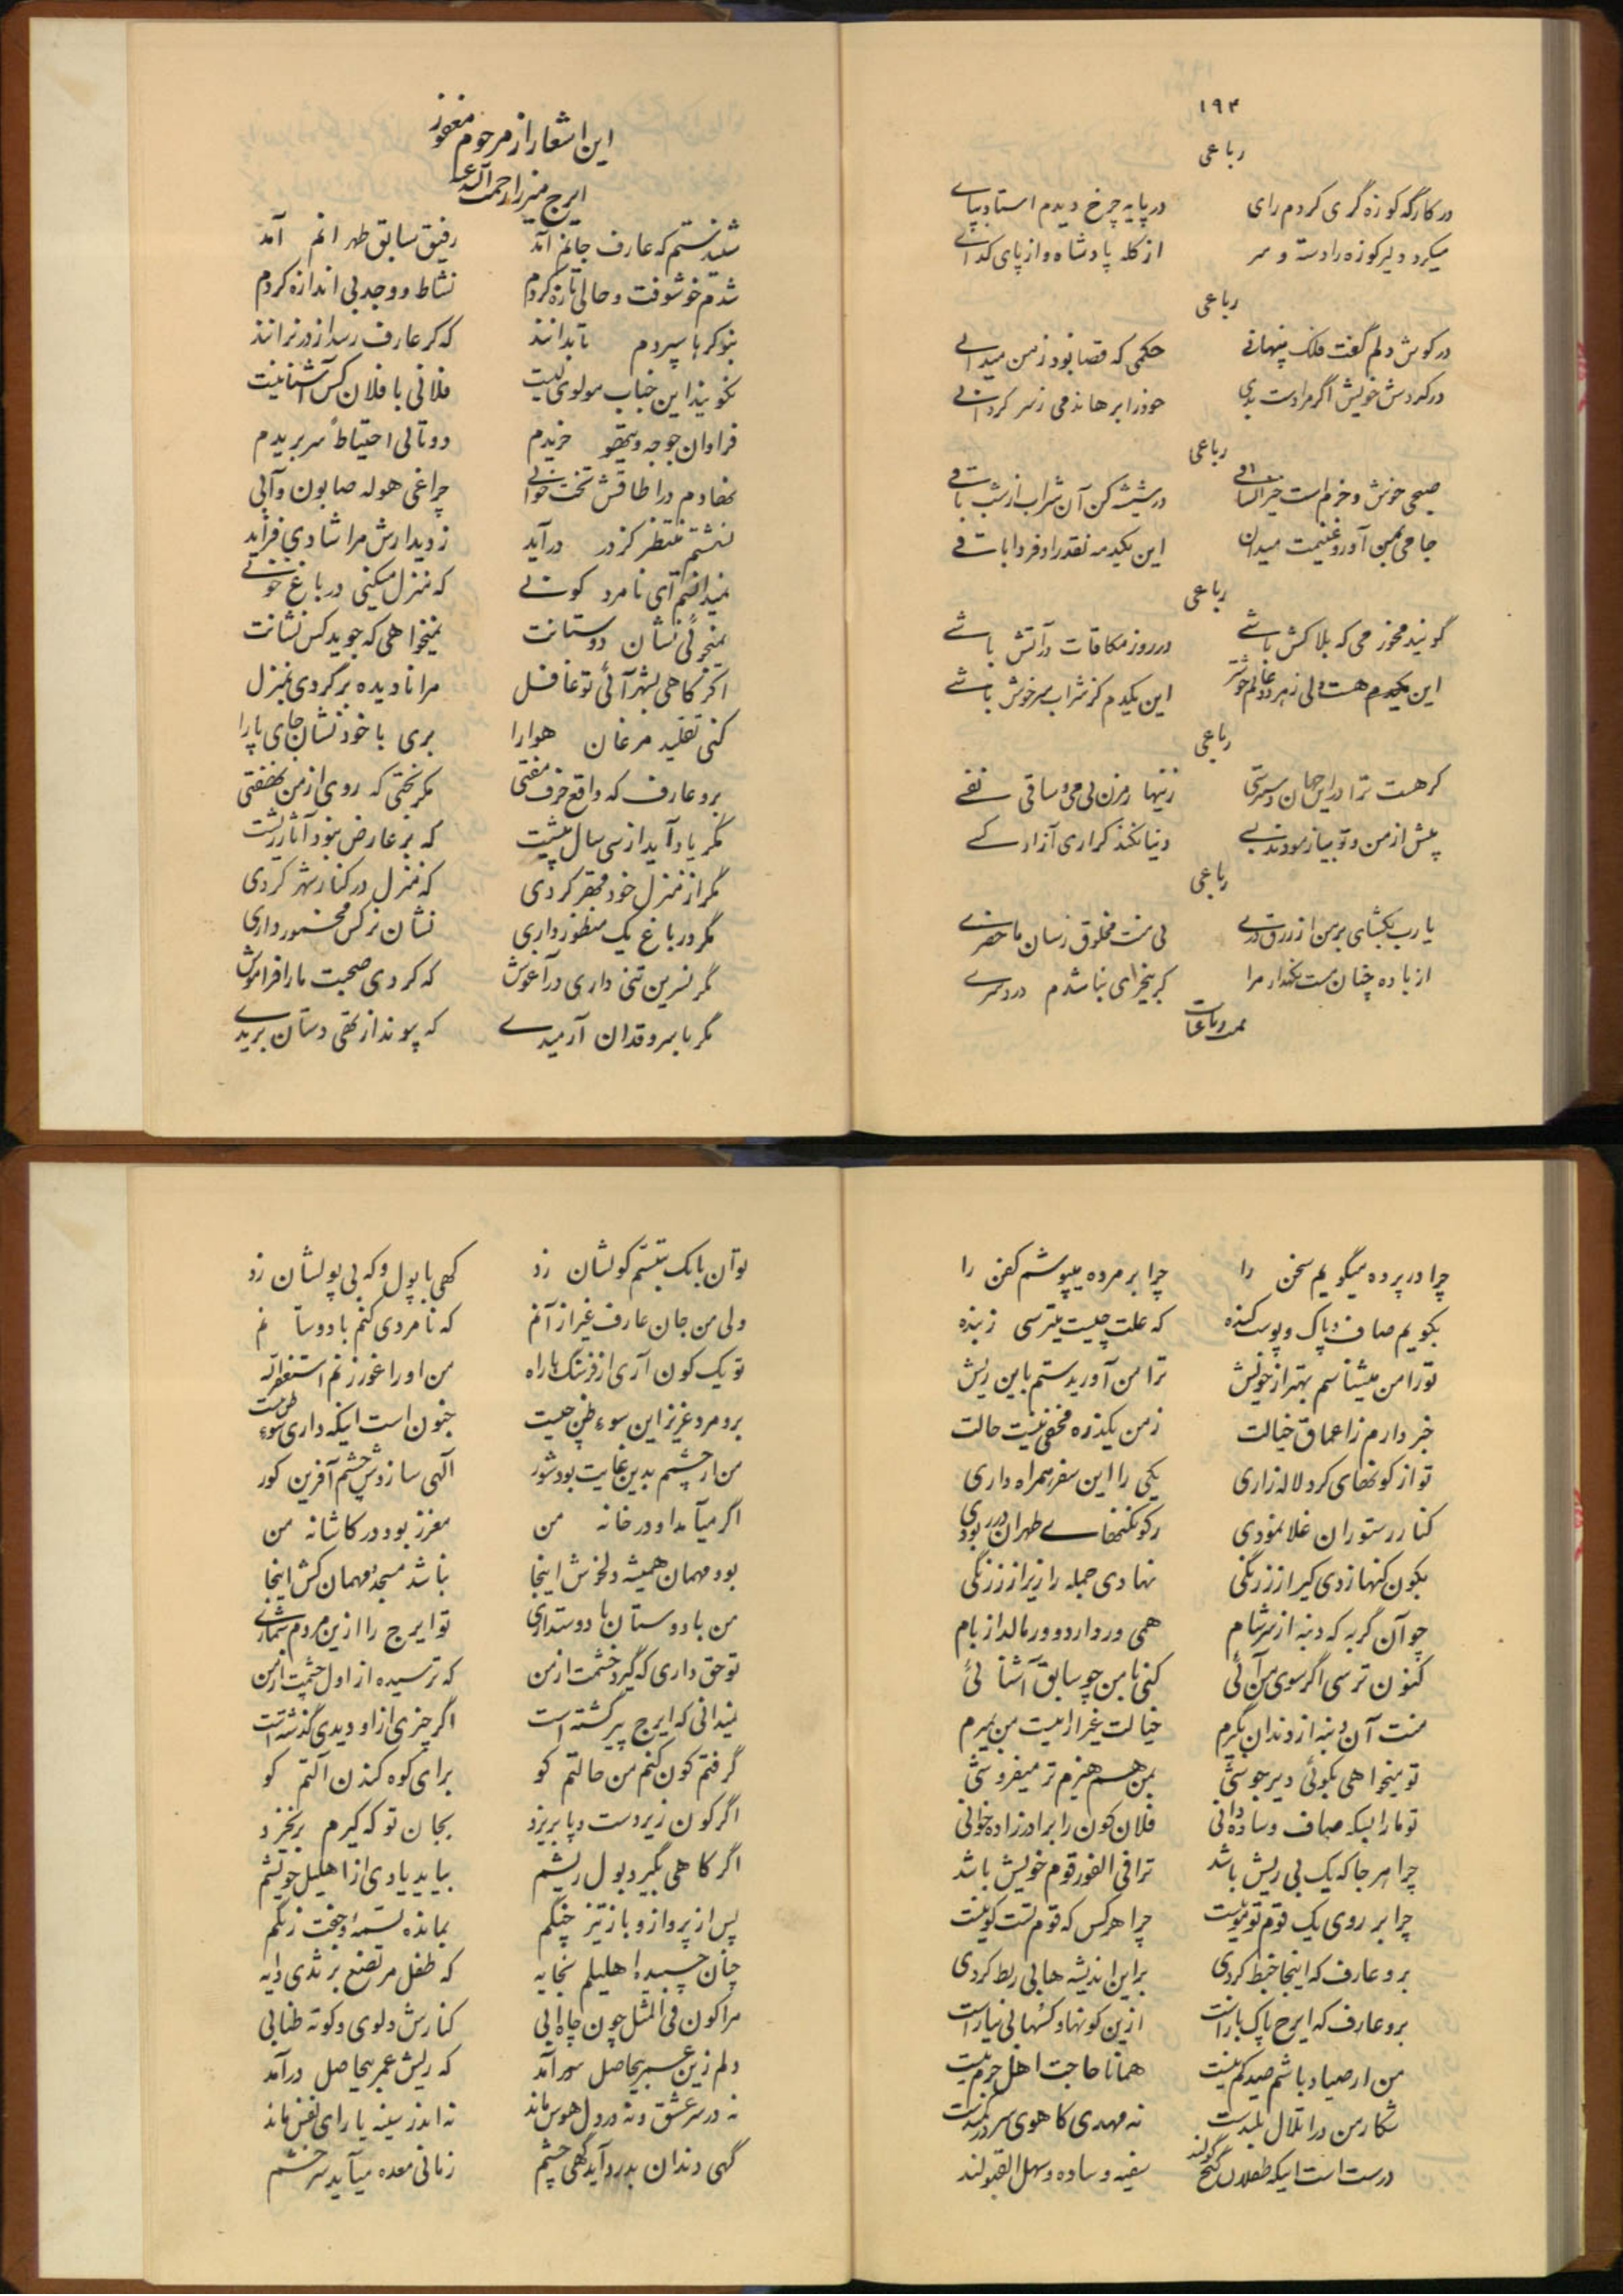 ۱۹۳
رباعی
در کارگه کوزه گری کردم رای در پایه چرخ دیدم استاد بپای
میکرد دلیر کوزه را دسته و سر از کله پادشاه و از پای گدای
رباعی
در گوش دلم گفت فلک پنهانی حکمی که قضا بود ز من میدانی
در گردش خویش اگر مرا دست بدی خود را برهاندمی ز سر گردانی
رباعی
صبحی خوش و خرم است خیز ای ساقی در شیشه کن آن شراب از شب باقی
جامی بمن آور و غنیمت میدان این یکدمه نقد را و فردا باقی
رباعی
گویند مخور می که بلاکش باشی در روز مکافات در آتش باشی
این هست ولی ز هر دو عالم خوشتر این یکدم کز شراب سرخوش باشی
رباعی
گر هست ترا در این جهان دسترسی زینهار مزن بی می و ساقی نفسی
پیش از من و تو بیازمودند بسی دنیا نکند گرا ری آزار کسی
رباعی
یا رب بگشای بر من از رزق دری بی منت مخلوق رسان ما حضری
از باده چنان مست نگهدار مرا کز بیخبری نباشدم دردسری
تمت رباعیات
این اشعار از مرحوم مغفور
ایرج میرزا رحمت الله علیه
شنیدستم که عارف جانم آمد رفیق سابق طهرانم آمد
شدم خوشوقت و جانی تازه کردم نشاط و وجد بی اندازه کردم
بنوکرها سپردم تا بدانند که گر عارف رسد از در نرانند
نگویند این جناب مولوی کیست فلانی با فلان کس آشنا نیست
فراوان جوجه و تیهو خریدم دو تائی احتیاطاً سر بریدم
نهادم در اطاقش تخت خوابی چراغی هوله صابون و آبی
نشستم منتظر کز در درآید ز دیدارش مرا شادی فزاید
نمیدانستم ای نامرد کونی که منزل میکنی در باغ خونی
نمیجوئی نشان دوستانت نمیخواهی که جوید کس نشانت
اگر گاهی بشهر آئی تو غافل مرا نادیده برگردی بمنزل
کنی تقلید مرغان هوا را بری با خود نشان جای پا را
برو عارف که واقع حرف مفتی مگر بختی که روی از من نهفتی
مگر یاد آید از سی سال پیشت که بر عارض نبود آثار ریشت
مگر از منزل خود قهر کردی که منزل در کنار شهر کردی
مگر در باغ یک منظور داری نشان نرگس مخمور داری
مگر نسرین تنی داری در آغوش که کردی صحبت ما را فراموش
مگر با سرو قدان آرمیدی که پیوند از تهی دستان بریدی
چرا در پرده میگویم سخن را چرا بر مرده میپوشم کفن را
بگویم صاف و پاک و پوست کنده که علت چیست میترسی ز بنده
تو را من میشناسم بهتر از خویش ترا من آوریدستم باین ریش
خبر دارم ز اعماق خیالت ز من یکذره مخفی نیست حالت
تو از کونهای گرد لاله زاری یکی را این سفر همراه داری
کنار رستوران غلا نمودی ز کونکنهای طهران در ربودی
بکون کنها زدی کیر از زرنگی نهادی جمله را زیر از زرنگی
چو آن گربه که دنبه از سر شام همی وردارد و ورمالد از بام
کنون ترسی اگر سوی من آئی کنی با من چو سابق آشنائی
منت آن دنبه از دندان بگیرم خیالت غیر از اینست من بمیرم
تو میخواهی بگوئی دیر جوشی بمن هم هیزم تر میفروشی
تو ما را بسکه صاف و ساده دانی فلان کون را برادر زاده خوانی
چرا هر جا که یک بی ریش باشد ترا فی الفور قوم خویش باشد
چرا بر روی یک قوم تو مو نیست چرا هر کس که قوم تست کونیست
برو عارف که اینجا خبط کردی بر این اندیشه ها بی ربط کردی
برو عارف که ایرج پاک باز است ازین کونها و کسها بی نیاز است
من ار صیاد باشم صید کم نیست همانا حاجت اهل حرم نیست
شکار من در اتلال بلند است نه مهدی کاهوی سر در کمند است
درست است اینکه طفلان گیج گولند سفیه و ساده و سهل القبولند
توان با یک تبسم گولشان زد گهی با پول و گه بی پولشان زد
ولی من جان عارف غیر از آنم که نامردی کنم با دوستانم
تو یک کون آری از فرسنگها راه من او را غر زنم استغفرالله
برو مرد عزیز این سوء ظن چیست جنون است اینکه داری سوء ظن نیست
من ار چشمم بدین غایت بود شور الهی سازدش چشم آفرین کور
اگر میآمد او در خانه من معزز بود در کاشانه من
بود مهمان همیشه دلخوش اینجا نباشد مسجد مهمان کش اینجا
من با دوستان نا دوستداری تو ایرج را ازین مردم شماری
تو حق داری که گیرد خشمت از من که ترسیده از اول چشمت از من
نمیدانی که ایرج پیر گشته است اگر چیزی از او دیدی گذشته است
گرفتم کون کنم من حالتم کو برای کوه کندن آلتم کو
اگر کون زیر دست و پا بریزد بجان تو که کیرم برنخیزد
اگر گاهی بگیرد بول ریشم بیاید یادی از احلیل خویشم
پس از پرواز باز تیز چنگم بمانده تسمه و جفت زنگم
چنان چسبیده احلیلم بخایه که طفل مرتضع بر ثدی دایه
مرا کون فی المثل چون چاه آبی کنارش دلوی و کوته طنابی
دلم زین عمر بیحاصل سر آمد که ریش عمر بیحاصل درآمد
نه در سر عشق و نه در دل هوس ماند نه اندر سینه یارای نفس ماند
گهی دندان بدرد آید گهی چشم زمانی معده میآید سر خشم